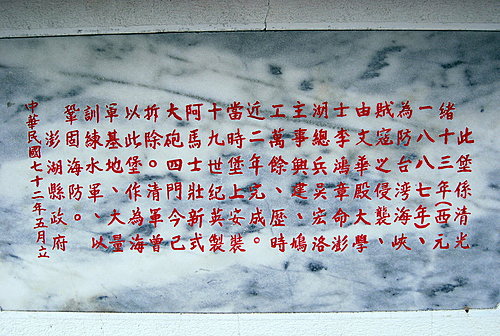 此堡係清光
緒十三年(西元
一八八七年)、
為防台湾海峽
賊寇之侵襲、
由文華殿大學
士李鴻章命澎
湖總兵吳宏洛
主事興建、鳩
工萬餘、歷時
近二年完成。
當時堡上安裝
十九世紀英製
阿馬士壯新式
大砲四門今已
拆除。清軍曾
以此堡作為海
軍基地、大量
訓練水軍、以
鞏固海防。
澎湖縣政府
中華民國七十二年五月立